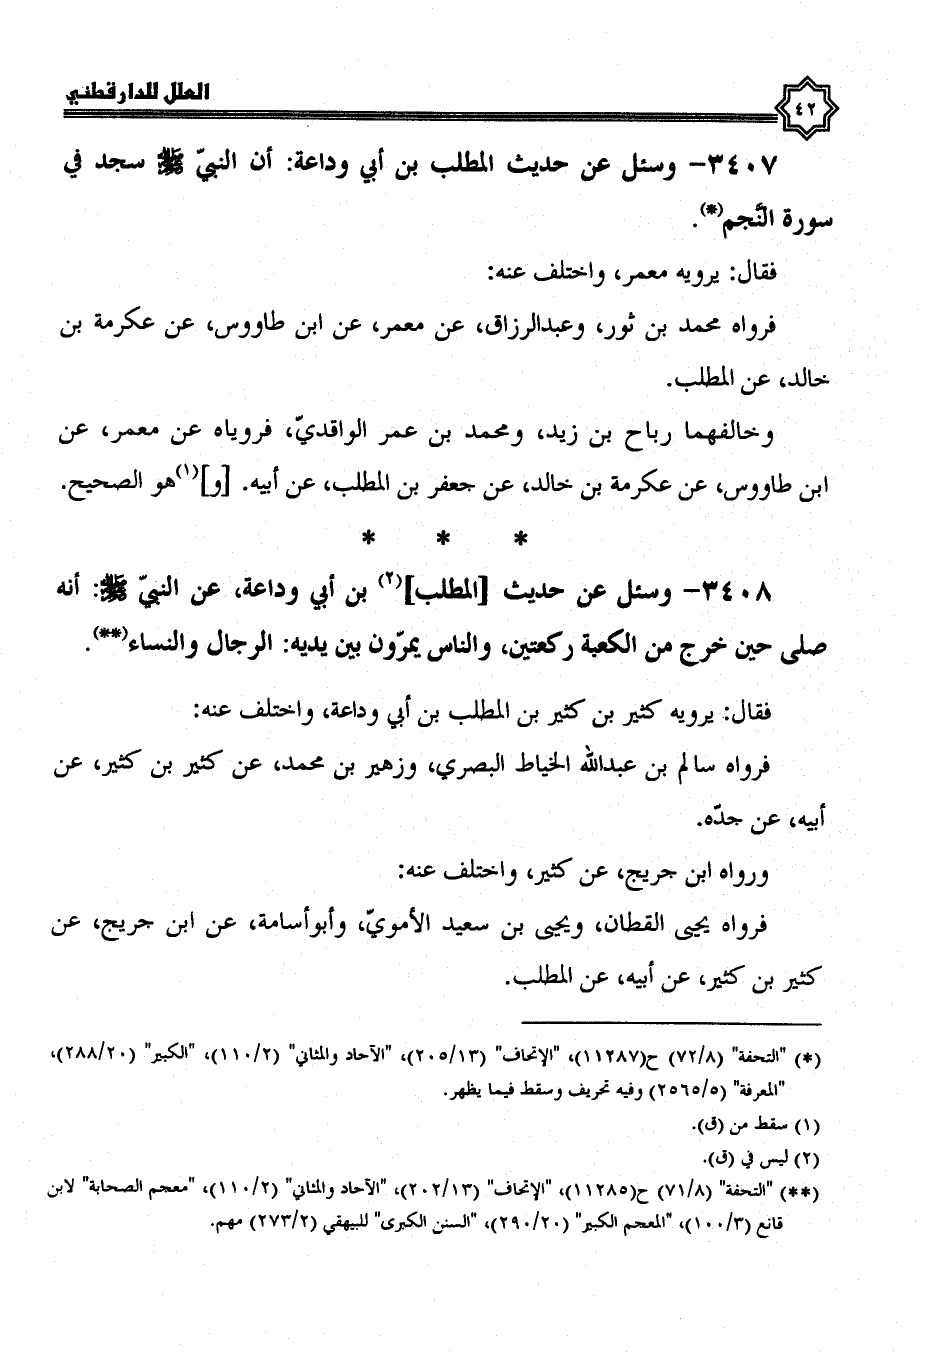 العلل للدارقطني
٤٢
٣٤٠٧- وسئل عن حديث المطلب بن أبي وداعة: أن النبيّ ﷺ سجد في
سورة النَّجم(*).
فقال: يرويه معمر، واختلف عنه:
فرواه محمد بن ثور، وعبدالرزاق، عن معمر، عن ابن طاووس، عن عكرمة بن
خالد، عن المطلب.
وخالفهما رباح بن زيد، ومحمد بن عمر الواقديّ، فروياه عن معمر، عن
ابن طاووس، عن عكرمة بن خالد، عن جعفر بن المطلب، عن أبيه. [و](١)هو الصحيح.
* * *
٣٤٠٨- وسئل عن حديث [المطلب](٢) بن أبي وداعة، عن النبيّ ﷺ: أنه
صلى حين خرج من الكعبة ركعتين، والناس يمرّون بين يديه: الرجال والنساء(**).
فقال: يرويه كثير بن كثير بن المطلب بن أبي وداعة، واختلف عنه:
فرواه سالم بن عبدالله الخياط البصري، وزهير بن محمد، عن كثير بن كثير، عن
أبيه، عن جدّه.
ورواه ابن جريج، عن كثير، واختلف عنه:
فرواه يحيى القطان، ويحيى بن سعيد الأمويّ، وأبوأسامة، عن ابن جريج، عن
كثير بن كثير، عن أبيه، عن المطلب.
(*) "التحفة" (٧٢/٨) ح(١١٢٨٧)، "الإتحاف" (٢٠٥/١٣)، "الآحاد والمثاني" (١١٠/٢)، "الكبير" (٢٨٨/٢٠)،
"المعرفة" (٢٥٦٥/٥) وفيه تحريف وسقط فيما يظهر.
(١) سقط من (ق).
(٢) ليس في (ق).
(**) "التحفة" (٧١/٨) ح(١١٢٨٥)، "الإتحاف" (٢٠٢/١٣)، "الآحاد والمثاني" (١١٠/٢)، "معجم الصحابة" لابن
قانع (١٠٠/٣)، "المعجم الكبير" (٢٩٠/٢٠)، "السنن الكبرى" للبيهقي (٢٧٣/٢) مهم.